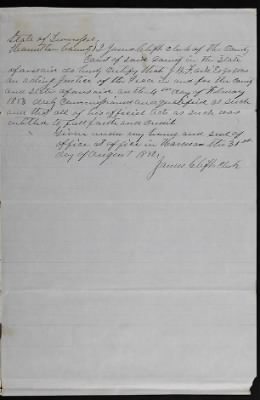 State of Tennessee,
Hamilton County } I James Clift clerk of the County
Court of said County in the State
aforesaid do hereby certify that J. H. Esqr was
an acting Justice of the Peace in and for the County
and State aforesaid on the day of February
1873 duly Commissioned and qualified as such
and that all of his official acts as such was
entitled to full faith and credit
Given under my hand and seal of
office at office in Harrison this 31st
day of August
James Clift Clerk